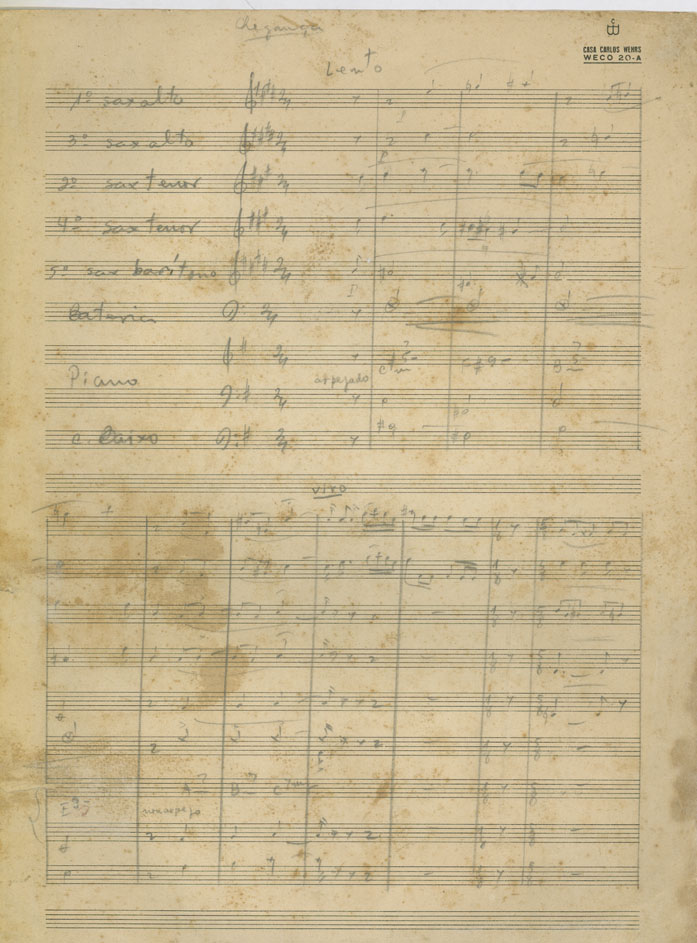 Chegança
CASA CARLOS WEHRS
WECO 20-A
Lento
1º sax alto
3º sax alto
2º sax tenor
4º sax tenor
5º sax barítono
Bateria
Piano
arpejado
C. Baixo
vivo